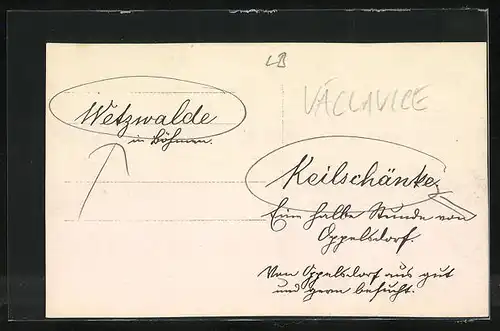 LB
VÁCLAVICE
Wetzwalde
in Böhmen.
Keilschänke.
Eine halbe Stunde von
Oppelsdorf.
Von Oppelsdorf aus gut
und gern besucht.